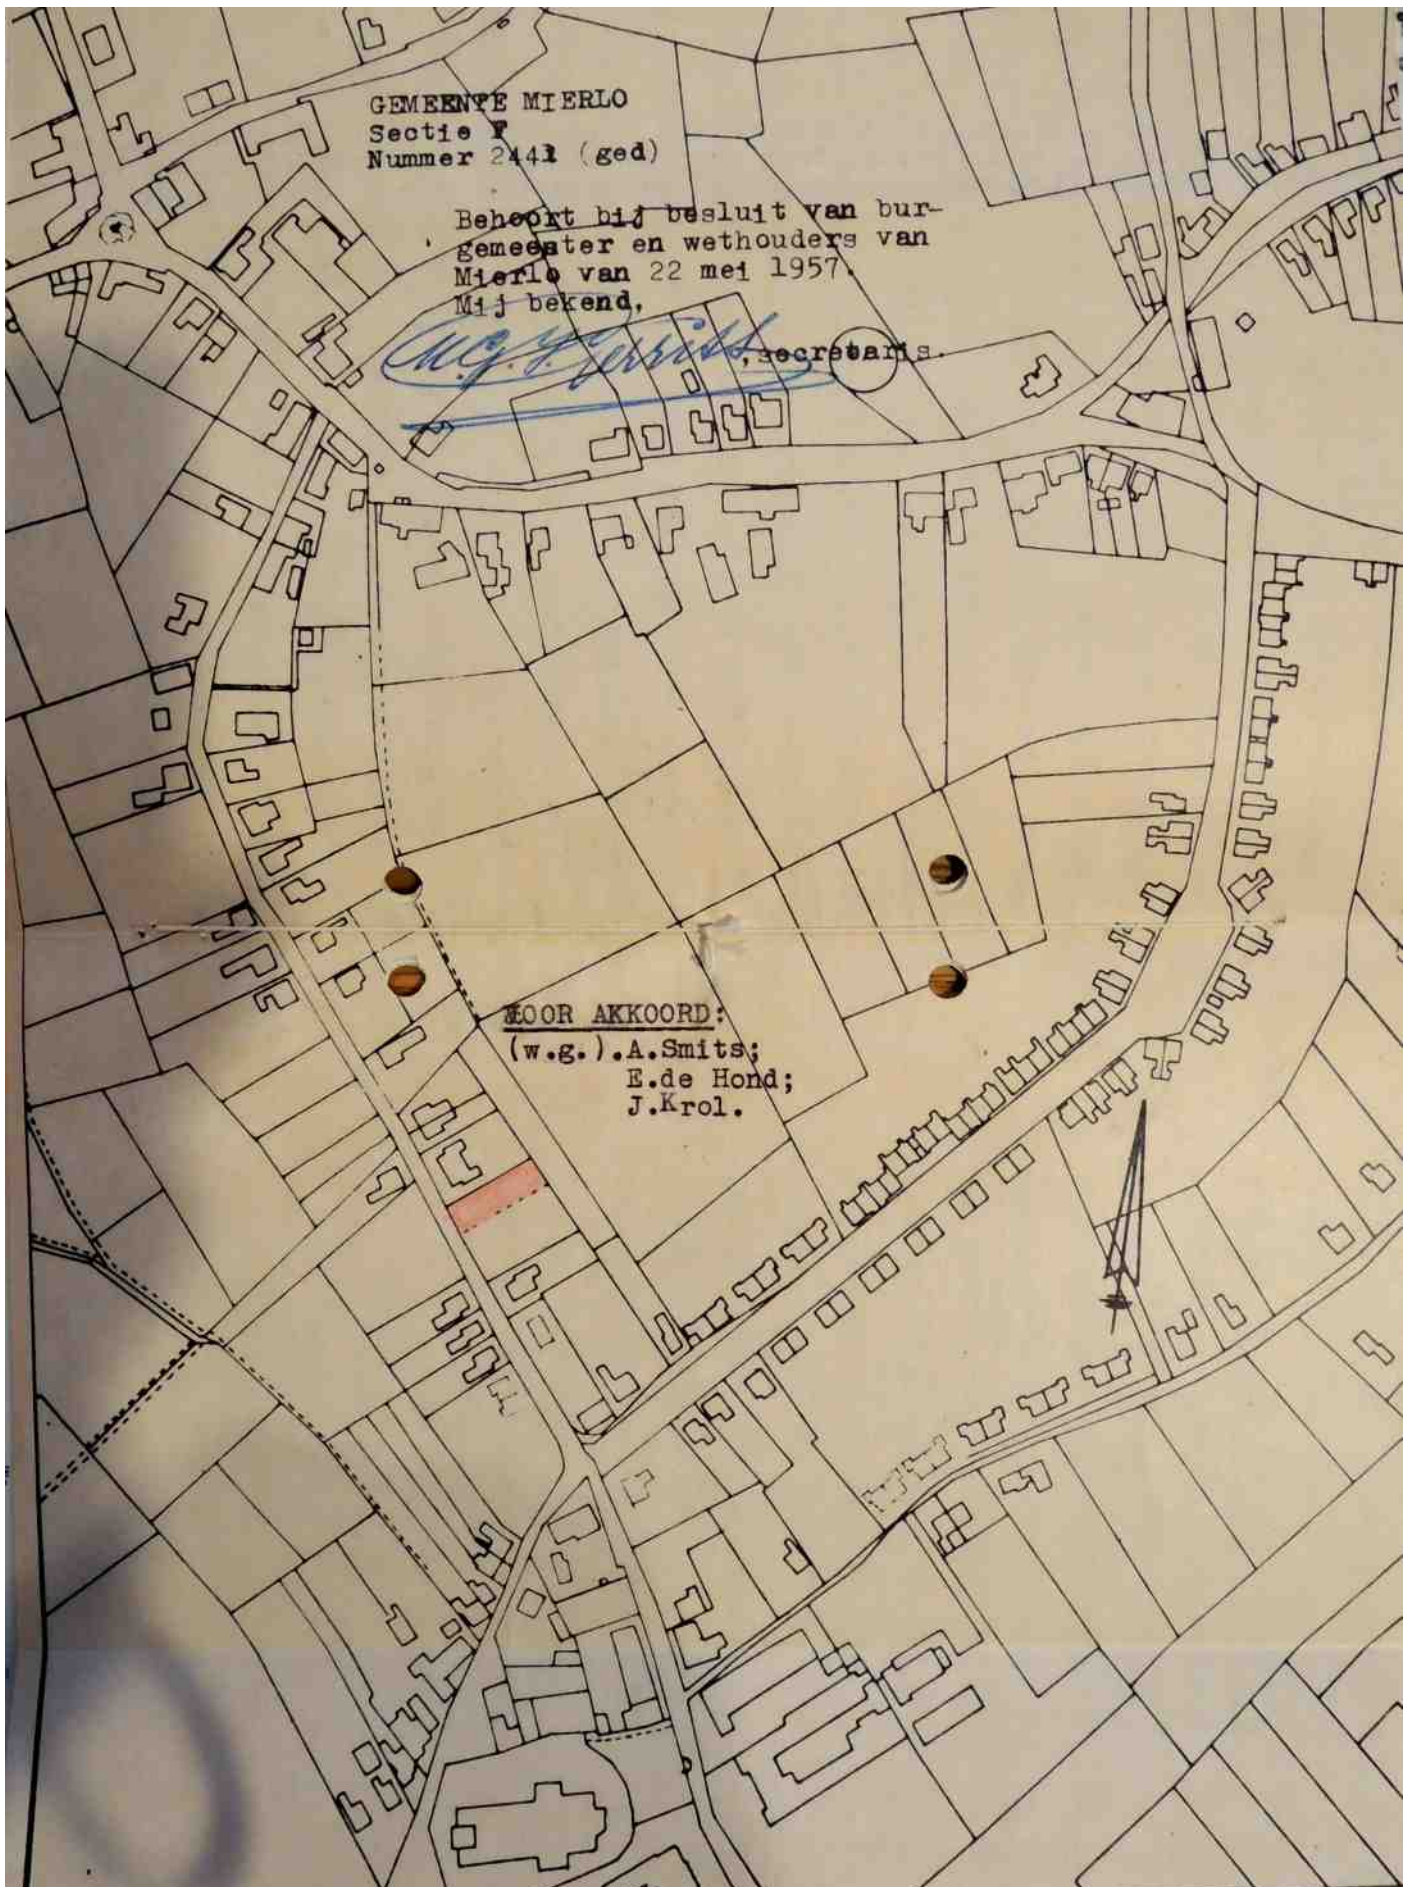 GEMEENTE MIERLO
Sectie F
Nummer 2441 (ged)
Behoort bij besluit van bur-
gemeester en wethouders van
Mierlo van 22 mei 1957.
Mij bekend,
, secretaris.
VOOR AKKOORD:
(w.g.).A.Smits;
E.de Hond;
J.Krol.